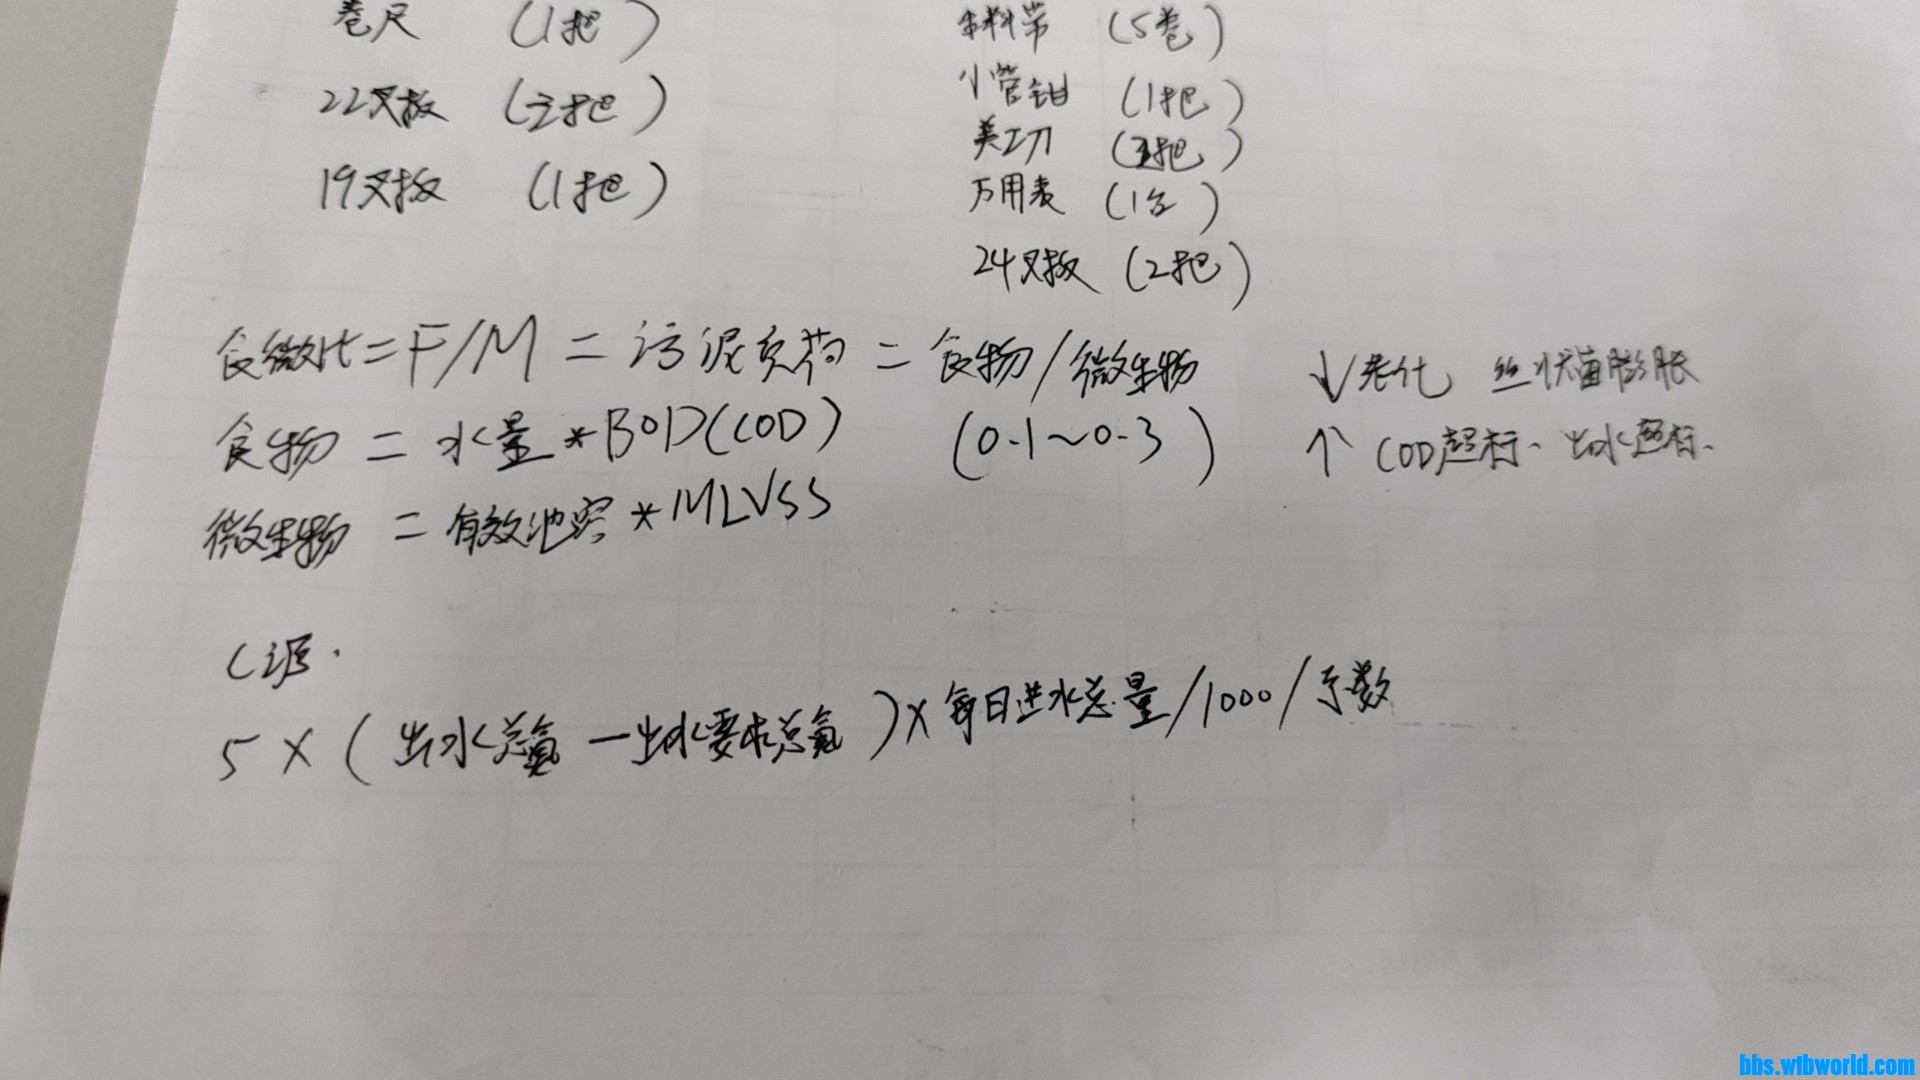 卷尺 (1把)
22叉扳 (3把)
19叉扳 (1把)
生料带 (5卷)
小管钳 (1把)
美工刀 (3把)
万用表 (1台)
24叉扳 (2把)
食微比=F/M=污泥负荷=食物/微生物 ↓老化 丝状菌膨胀
食物=水量*BOD(COD) (0.1~0.3) ↑COD超标、出水超标、
微生物=有效池容*MLVSS
C源.
5×(出水总氮-出水要求总氮)×每日进水总量/1000/系数
bbs.wtbworld.com